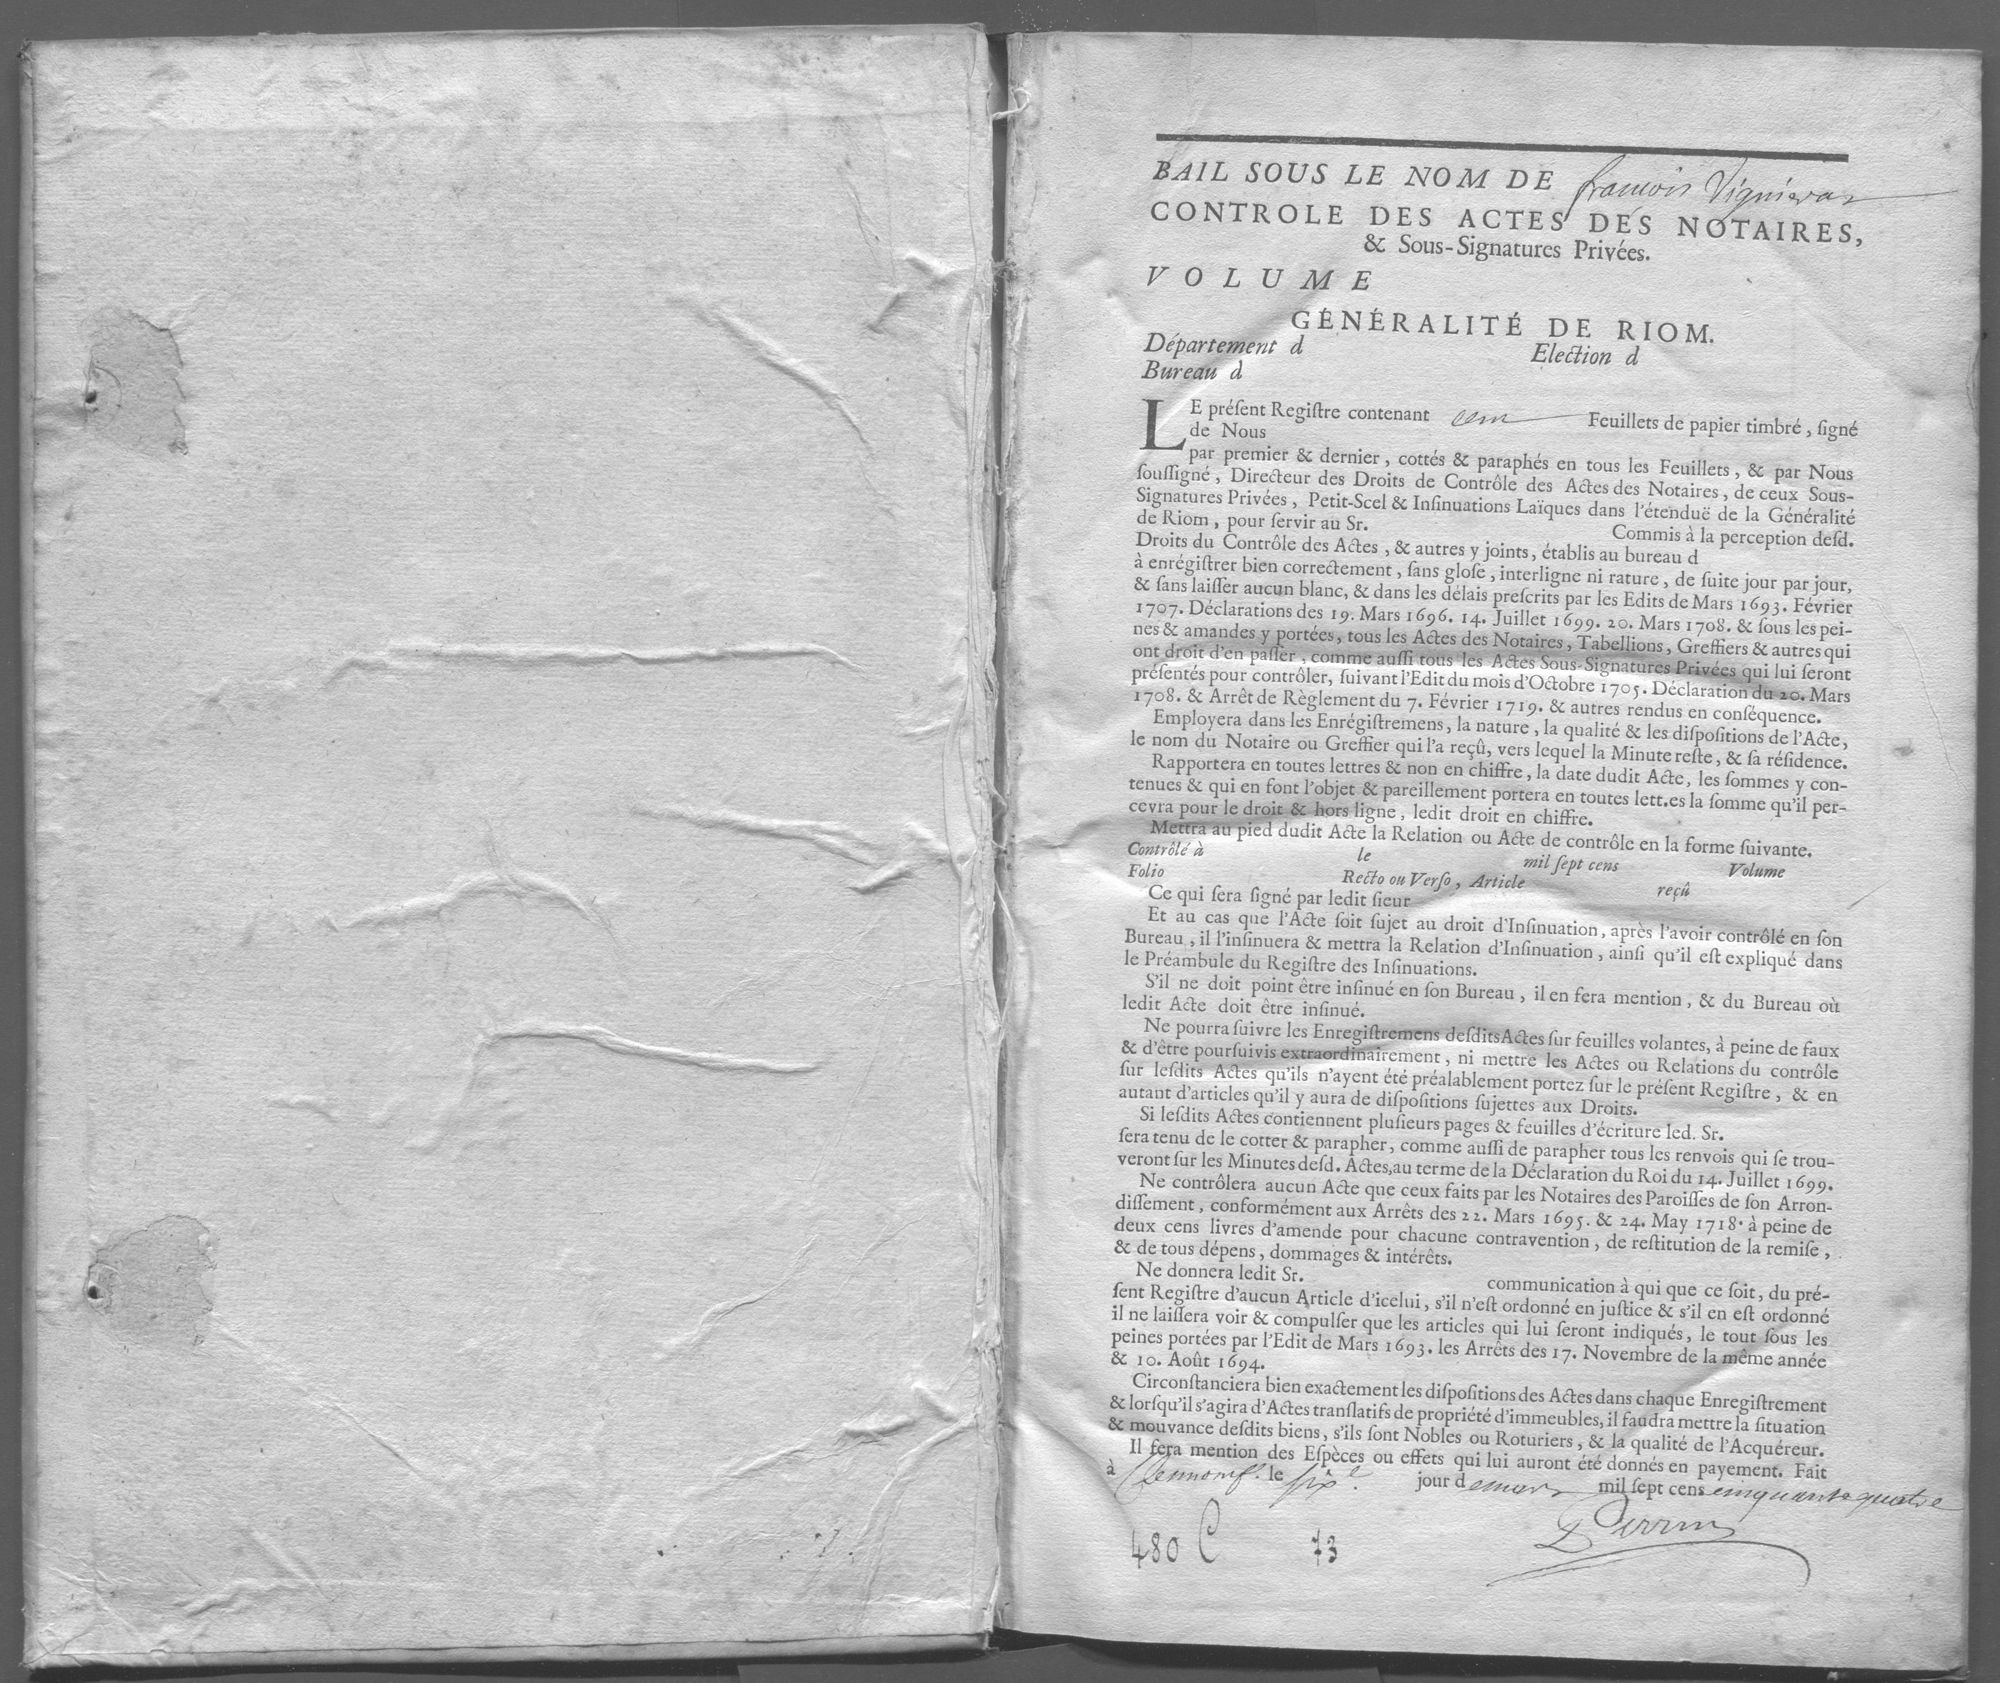 BAIL SOUS LE NOM DE françois Vignieras
CONTROLE DES ACTES DES NOTAIRES,
& Sous-Signatures Privées.
VOLUME
GÉNÉRALITÉ DE RIOM.
Département d Election d
Bureau d
LE préſent Regiſtre contenant cent Feuillets de papier timbré, ſigné
de Nous
par premier & dernier, cottés & paraphés en tous les Feuillets, & par Nous
ſouſſigné, Directeur des Droits de Contrôle des Actes des Notaires, de ceux Sous-
Signatures Privées, Petit-Scel & Inſinuations Laïques dans l'étenduë de la Généralité
de Riom, pour ſervir au Sr. Commis à la perception deſd.
Droits du Contrôle des Actes, & autres y joints, établis au bureau d
à enrégiſtrer bien correctement, ſans gloſe, interligne ni rature, de ſuite jour par jour,
& ſans laiſſer aucun blanc, & dans les délais preſcrits par les Edits de Mars 1693. Février
1707. Déclarations des 19. Mars 1696. 14. Juillet 1699. 20. Mars 1708. & ſous les pei-
nes & amandes y portées, tous les Actes des Notaires, Tabellions, Greffiers & autres qui
ont droit d'en paſſer, comme auſſi tous les Actes Sous-Signatures Privées qui lui ſeront
préſentés pour contrôler, ſuivant l'Edit du mois d'Octobre 1705. Déclaration du 20. Mars
1708. & Arrêt de Règlement du 7. Février 1719. & autres rendus en conſéquence.
Employera dans les Enrégiſtremens, la nature, la qualité & les diſpoſitions de l'Acte,
le nom du Notaire ou Greffier qui l'a reçû, vers lequel la Minute reſte, & ſa réſidence.
Rapportera en toutes lettres & non en chiffre, la date dudit Acte, les ſommes y con-
tenues & qui en font l'objet & pareillement portera en toutes lett.es la ſomme qu'il per-
cevra pour le droit & hors ligne, ledit droit en chiffre.
Mettra au pied dudit Acte la Relation ou Acte de contrôle en la forme ſuivante.
Contrôlé à le mil ſept cens Volume
Folio Recto ou Verſo, Article reçû
Ce qui ſera ſigné par ledit ſieur
Et au cas que l'Acte ſoit ſujet au droit d'Inſinuation, après l'avoir contrôlé en ſon
Bureau, il l'inſinuera & mettra la Relation d'Inſinuation, ainſi qu'il eſt expliqué dans
le Préambule du Regiſtre des Inſinuations.
S'il ne doit point être inſinué en ſon Bureau, il en fera mention, & du Bureau où
ledit Acte doit être inſinué.
Ne pourra ſuivre les Enregiſtremens deſdits Actes ſur feuilles volantes, à peine de faux
& d'être pourſuivis extraordinairement, ni mettre les Actes ou Relations du contrôle
ſur leſdits Actes qu'ils n'ayent été préalablement portez ſur le préſent Regiſtre, & en
autant d'articles qu'il y aura de diſpoſitions ſujettes aux Droits.
Si leſdits Actes contiennent pluſieurs pages & feuilles d'écriture led. Sr.
ſera tenu de le cotter & parapher, comme auſſi de parapher tous les renvois qui ſe trou-
veront ſur les Minutes deſd. Actes, au terme de la Déclaration du Roi du 14. Juillet 1699.
Ne contrôlera aucun Acte que ceux faits par les Notaires des Paroiſſes de ſon Arron-
diſſement, conformément aux Arrêts des 22. Mars 1695. & 24. May 1718. à peine de
deux cens livres d'amende pour chacune contravention, de reſtitution de la remiſe,
& de tous dépens, dommages & intérêts.
Ne donnera ledit Sr. communication à qui que ce ſoit, du pré-
ſent Regiſtre d'aucun Article d'icelui, s'il n'eſt ordonné en juſtice & s'il en eſt ordonné
il ne laiſſera voir & compulſer que les articles qui lui ſeront indiqués, le tout ſous les
peines portées par l'Edit de Mars 1693. les Arrêts des 17. Novembre de la même année
& 10. Août 1694.
Circonſtanciera bien exactement les diſpoſitions des Actes dans chaque Enregiſtrement
& lorſqu'il s'agira d'Actes tranſlatifs de propriété d'immeubles, il faudra mettre la ſituation
& mouvance deſdits biens, s'ils ſont Nobles ou Roturiers, & la qualité de l'Acquéreur.
Il fera mention des Eſpèces ou effets qui lui auront été donnés en payement. Fait
à Clermont f. le six e jour de mars mil ſept cens cinquante quatre
Perrin
480 C 73